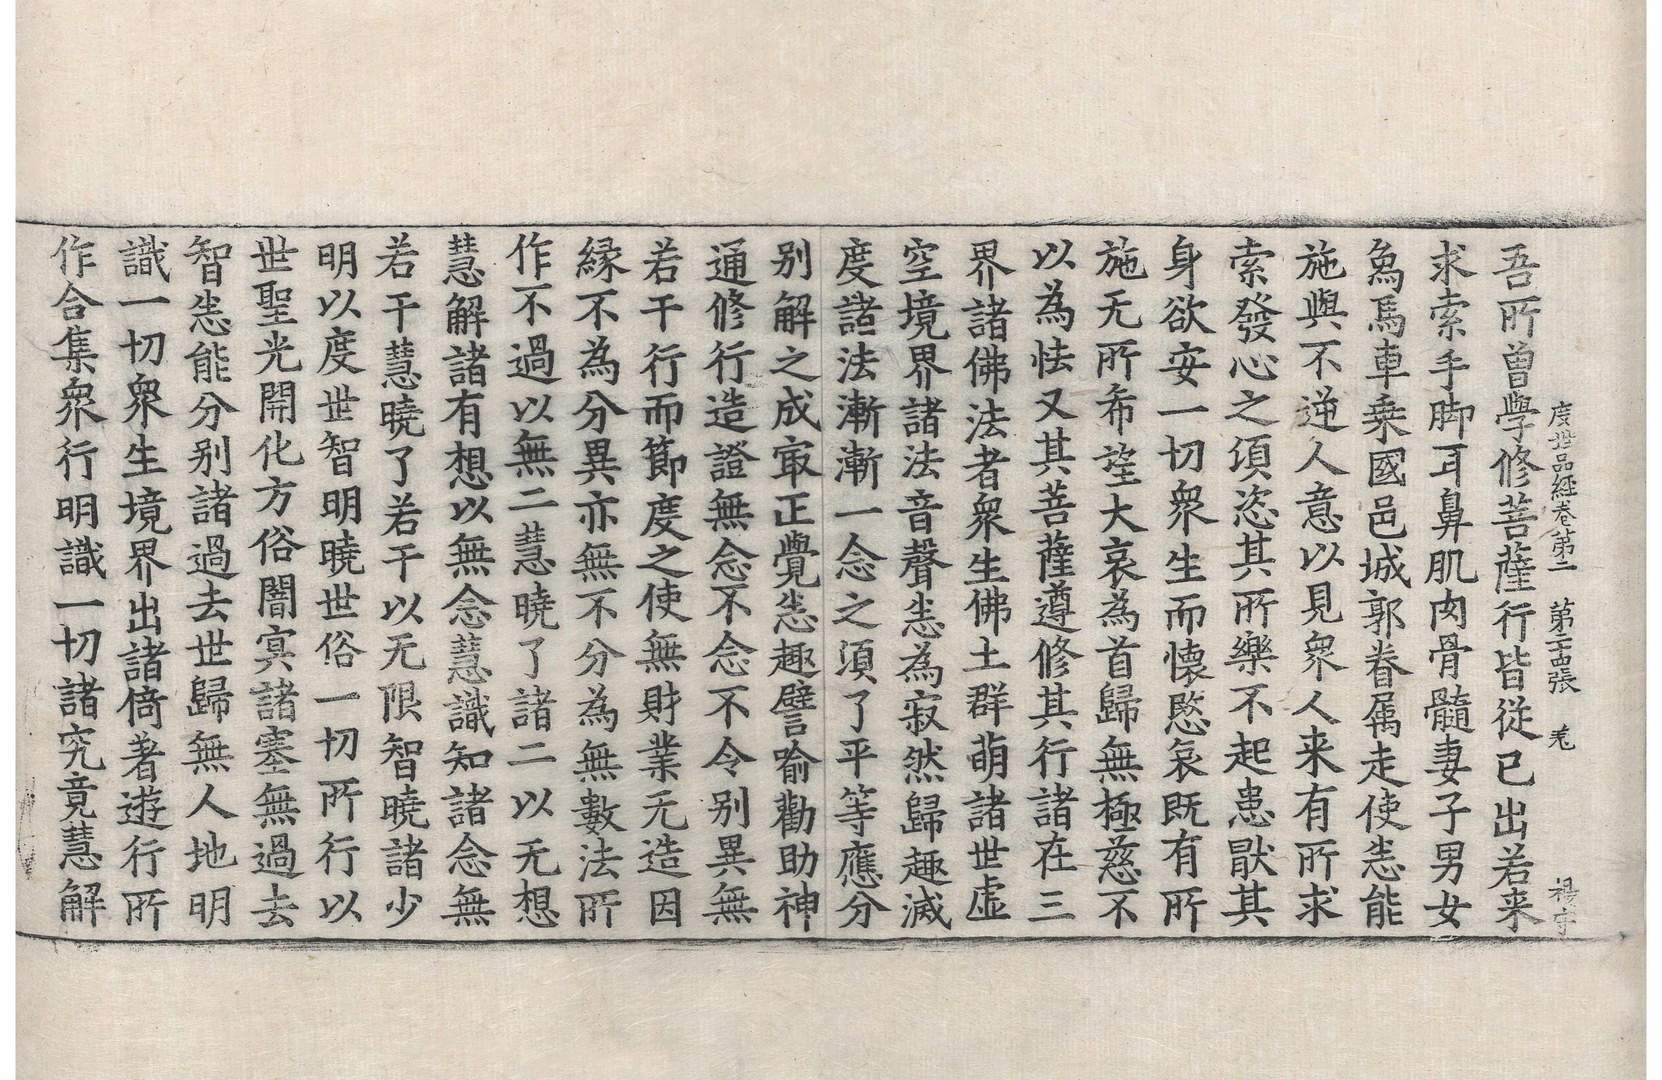 度世品經卷第二 第二十四張 羌 楊守
吾所曾學修菩薩行皆從已出若来
求索手脚耳鼻肌肉骨髓妻子男女
烏馬車乗國邑城郭眷属走使悉能
施與不逆人意以見衆人来有所求
索發心之湏恣其所樂不起患厭其
身欲安一切衆生而懐愍哀既有所
施无所希望大哀為首歸無極慈不
以為怯又其菩薩遵修其行諸在三
界諸佛法者衆生佛土群萌諸世虚
空境界諸法音聲悉為寂然歸趣滅
度諸法漸漸一念之湏了平等應分
别解之成㝡正覺悉趣譬喻勸助神
通修行造證無念不念不令别異無
若干行而節度之使無財業无造因
縁不為分異亦無不分為無數法所
作不過以無二慧曉了諸二以无想
慧解諸有想以無念慧識知諸念無
若干慧曉了若干以无限智曉諸少
明以度世智明曉世俗一切所行以
世聖光開化方俗闇冥諸塞無過去
智悉能分别諸過去世歸無人地明
識一切衆生境界出諸倚著遊行所
作合集衆行明識一切諸究竟慧解